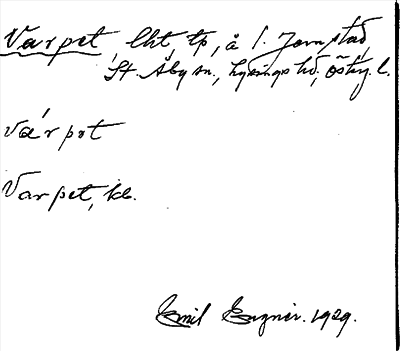 Varpet, lht, tp, å f. Jemstad,
St. Åby sn., Lysings hd, östg. l.
várpət
Varpet, kb.
Emil Engnér. 1929.